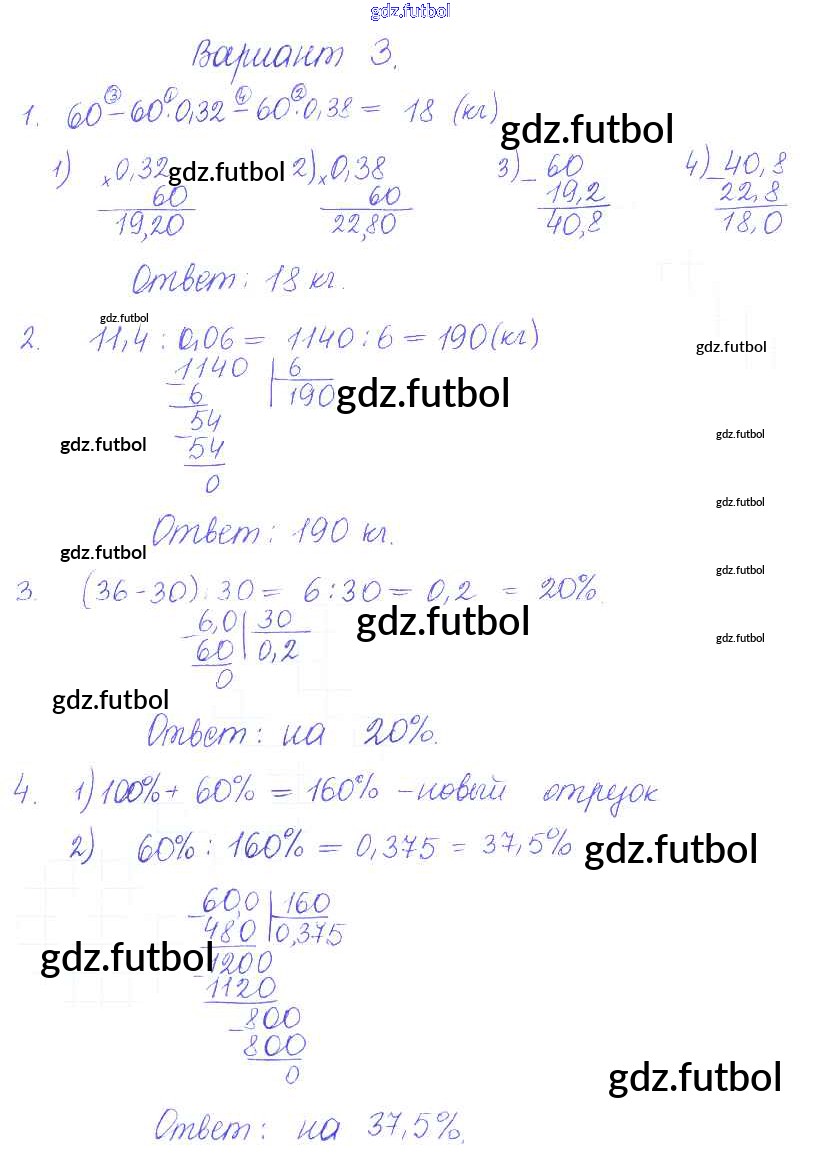 gdz.futbol
Вариант 3.
1. 60 ③ − 60 ① · 0,32 ④ − 60 ② · 0,38 = 18 (кг)
gdz.futbol
1) × 0,32 gdz.futbol 2) × 0,38 3) − 60 4) − 40,8
60 60 19,2 22,8
19,20 22,80 40,8 18,0
Ответ: 18 кг.
gdz.futbol
2. 11,4 : 0,06 = 1140 : 6 = 190 (кг)
gdz.futbol
− 1140 | 6
6 | 190 gdz.futbol
54
gdz.futbol
− 54
gdz.futbol
0
gdz.futbol
Ответ: 190 кг.
gdz.futbol
gdz.futbol
3. (36 - 30) : 30 = 6 : 30 = 0,2 = 20%.
− 6,0 | 30 gdz.futbol
60 | 0,2
gdz.futbol
0
gdz.futbol
Ответ: на 20%.
4. 1) 100% + 60% = 160% - новый отрезок
2) 60% : 160% = 0,375 = 37,5% gdz.futbol
− 60,0 | 160
480 | 0,375
gdz.futbol
− 1200
1120
− 800
800
0
gdz.futbol
Ответ: на 37,5%.